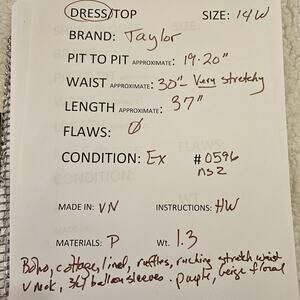 DRESS/TOP SIZE: 14W
BRAND: Taylor
PIT TO PIT APPROXIMATE: 19-20"
WAIST APPROXIMATE: 30" - Very stretchy
LENGTH APPROXIMATE: 37"
FLAWS: Ø
CONDITION: Ex #0596
ns2
MADE IN: VN INSTRUCTIONS: HW
MATERIALS: P Wt. 1.3
Boho, cottage, lined, ruffles, ruching stretch waist
V neck, 3/4 balloon sleeves. purple, beige floral